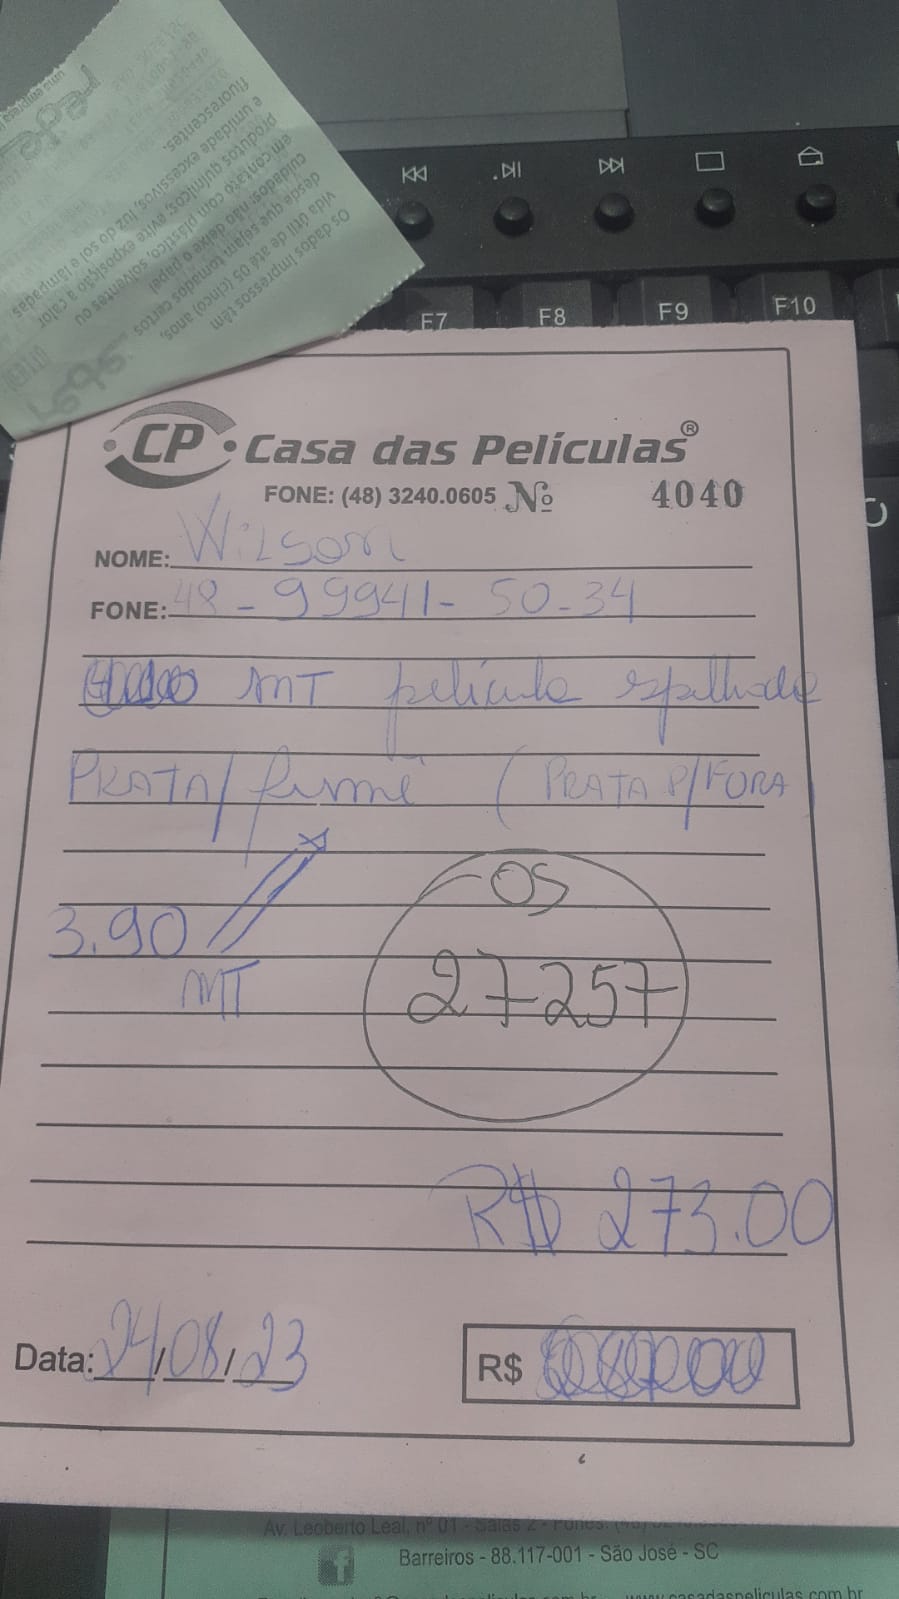 uma empresa
rede
Os dados impressos têm
vida útil de até 05 (cinco) anos,
desde que sejam tomados certos
cuidados: não deixe o papel
em contato com plástico, solventes ou
produtos químicos; evite exposição a calor
e umidade excessivos, luz do sol e lâmpadas
fluorescentes.
rede
F7 F8 F9 F10
CP Casa das Películas®
FONE: (48) 3240.0605 Nº 4040
NOME: Wilson
FONE: 48-99941-50-34
MT película espelhada
PRATA/fumê (PRATA P/FORA
3.90
MT
OS
27257
R$ 273.00
Data: 24/08/23 R$
Av. Leoberto Leal, nº 01 - Salas 2 - Fones: (48)
f Barreiros - 88.117-001 - São José - SC
www.casadaspeliculas.com.br